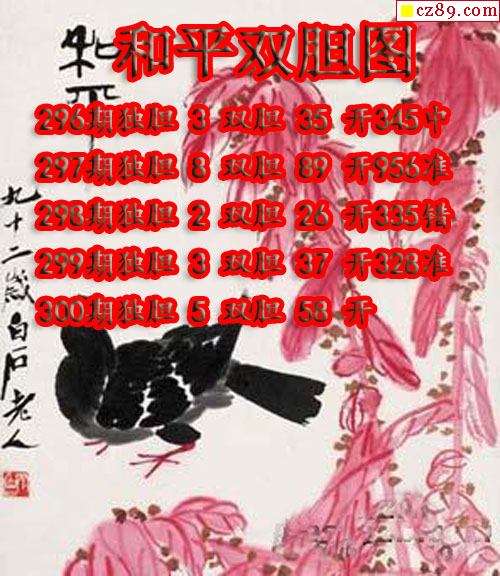 cz89.com
和平双胆图
296期独胆 3 双胆 35 开345中
297期独胆 8 双胆 89 开956准
298期独胆 2 双胆 26 开335错
299期独胆 3 双胆 37 开328准
300期独胆 5 双胆 58 开
九十二岁白石老人